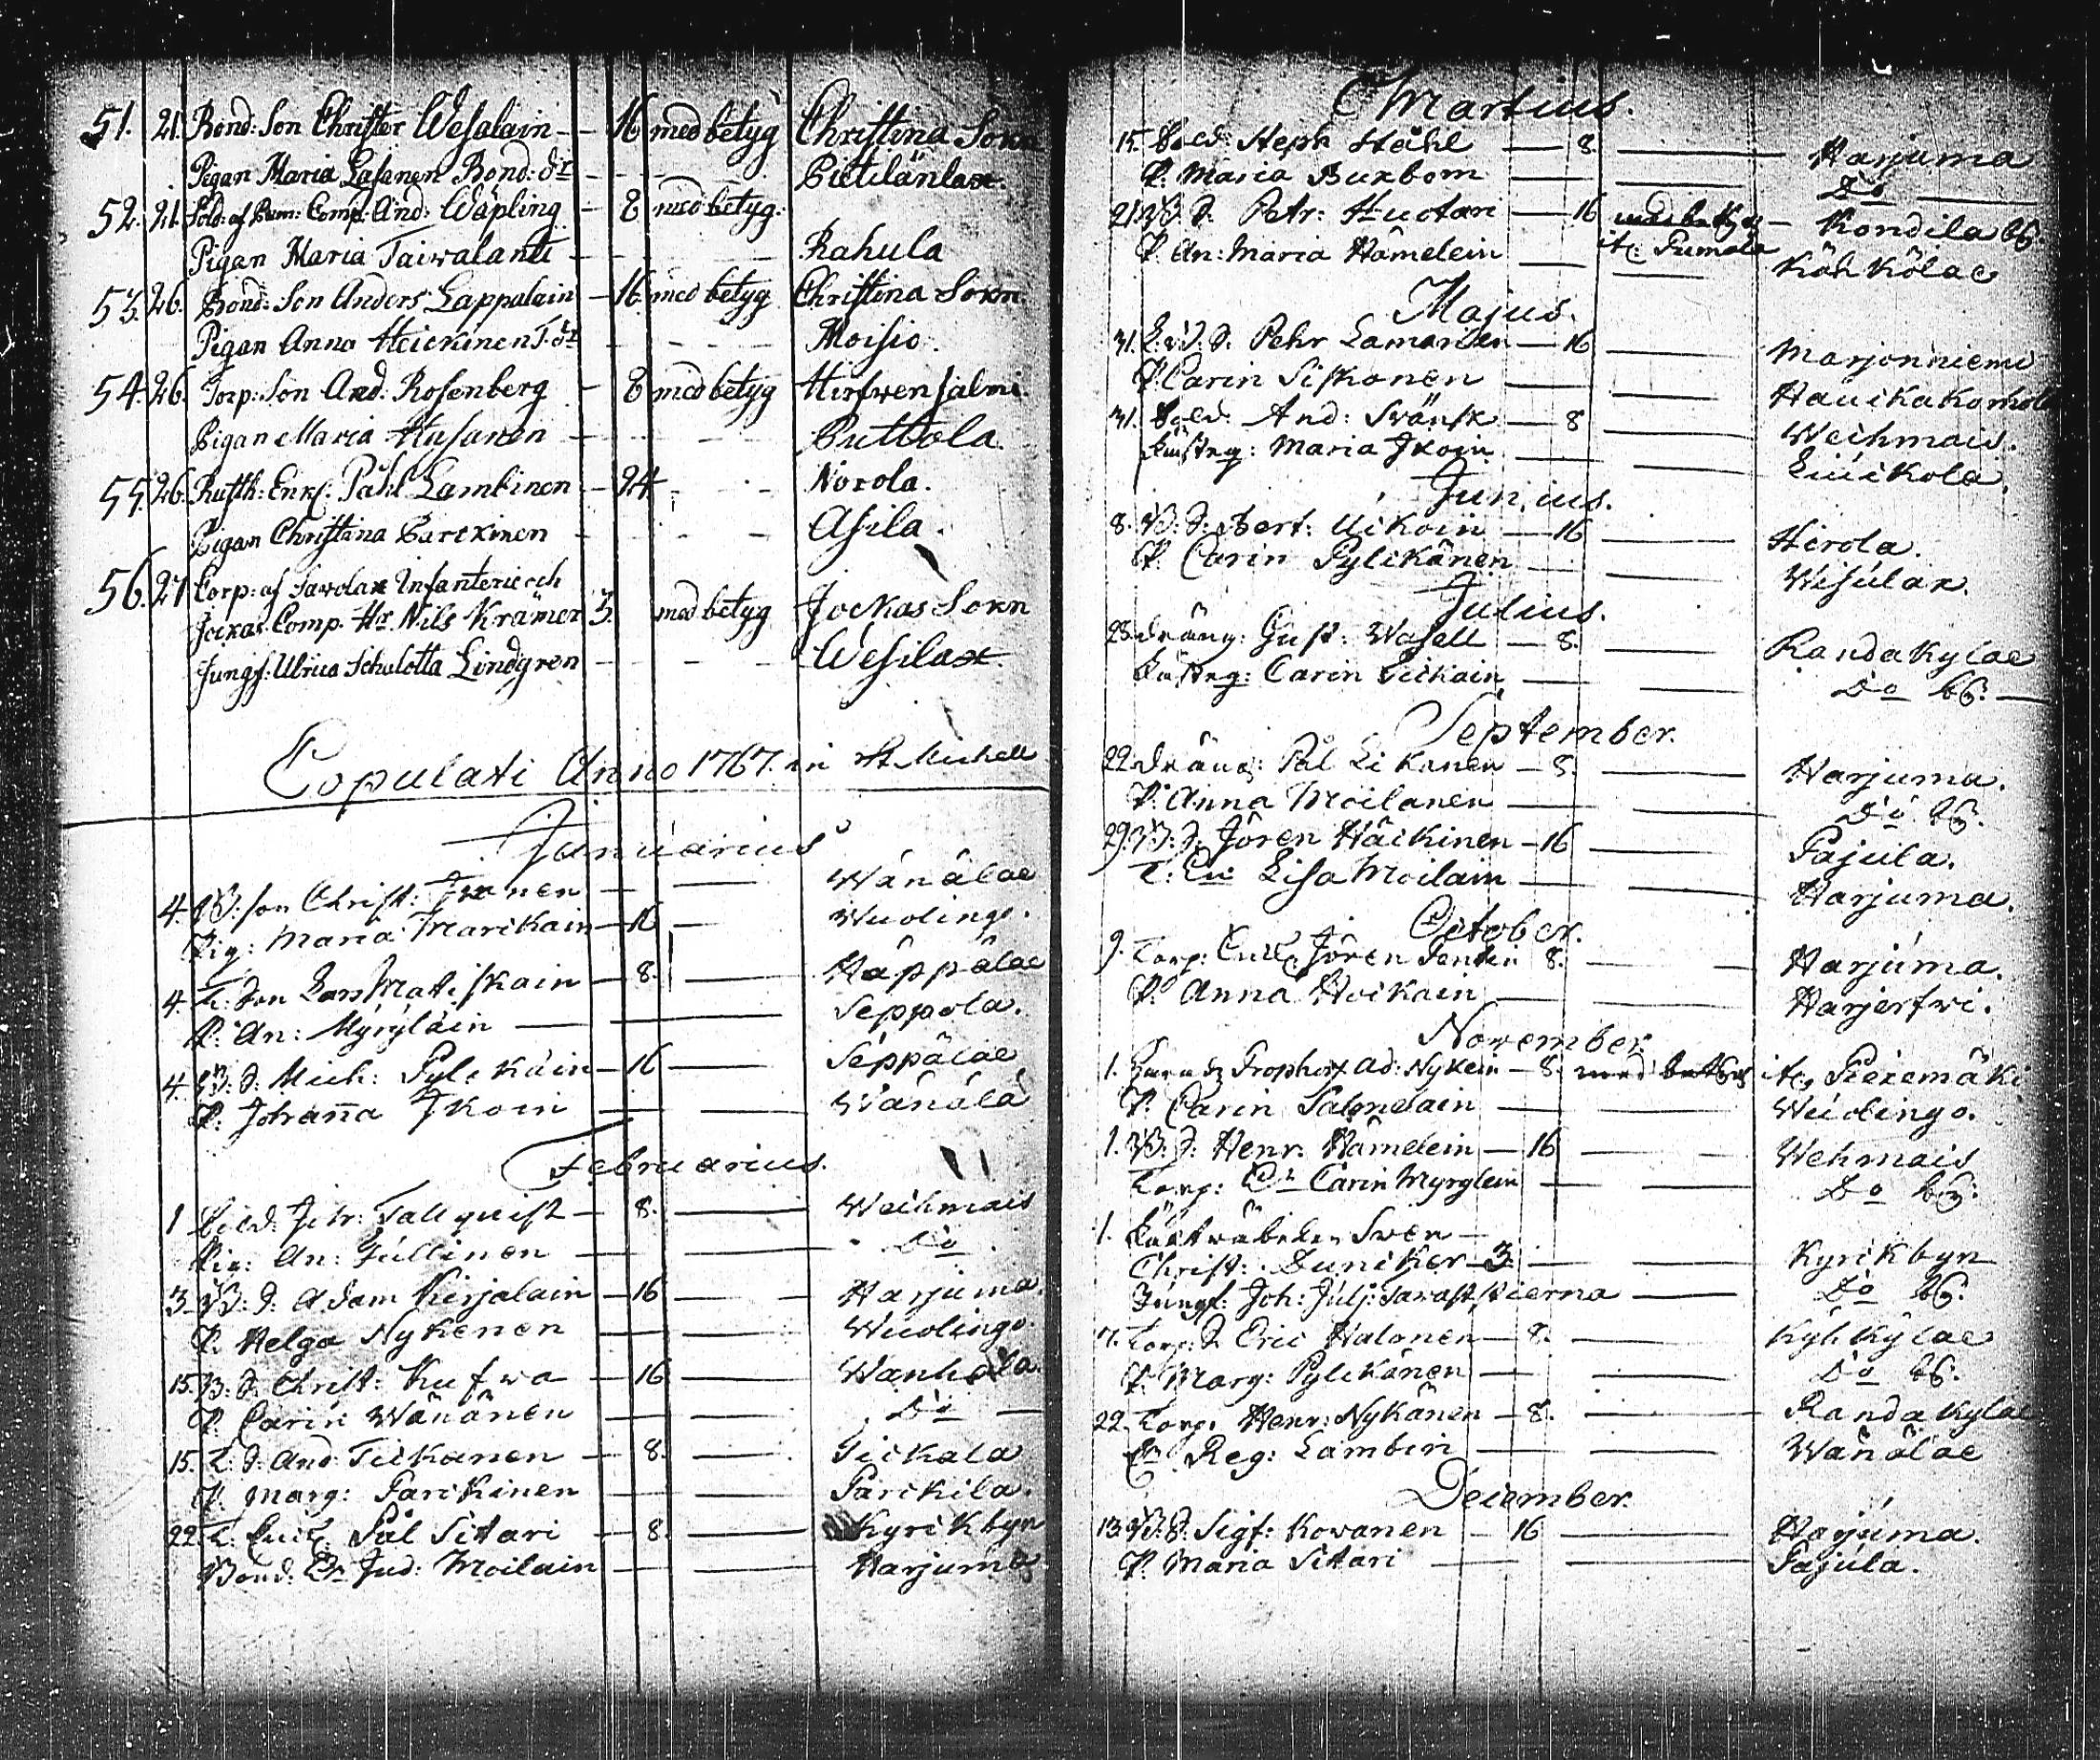 51. 21. Bond: Son Christer Wesalain — 16 med betyg Christina Sokn
Pigan Maria Lasanen Bond: dr - - - Pittilänlax.
52. 21. Sold: af Bem: Comp. And: Wäpling — 8 med betyg.
Pigan Maria Taiwalanti - - - Rahula
53. 26. Bond: Son Anders Lappalain — 16 med betyg Christina Sokn
Pigan Anna Heickinen T. dr - - - Moisio.
54. 26. Torp: Son And: Rosenberg — 8 med betyg Hirfwensalmi.
Pigan Maria Husanen - - - Puttola
55. 26. Rusth: Enkl. Påhl Lambinen — 24 - - - Norola.
Pigan Christina Parckinen - - - Asila.
56. 27 Corp: af Savolax Infanterie och
Jockas Comp. Hr. Nils Krämer 3. med betyg Jockas Sokn
Jungf: Ulrica Schalotta Lindgren - - - Wesilax.
Copulati Anno 1767. in St. Michell
Januarius
4. B: son Christ: Ikonen — — Wänälae
Pig: Maria Marikain — 16 — Wuolingo.
4. T: Son Lars Matiskain — 8. — Häppälae
P. An: Myryläin — — Seppola.
4. B: S. Mich: Pylckäin — 16 — Seppälae
P: Johanna Ikoin — — Wänälä
Februarius.
1 Sold: Joh: Tallquist — 8. — Weihmais
Pig: An: Jullinen — — Do
3. B: S: Adam Kirjalain — 16 — Harjuma.
P. Helga Nykenen — — Wuolingo
15. B: S. Christ: Kufwa — 16 — Wanhala.
P. Carin Wänänen — — Do —
15. T: S: And: Tickanen — 8. — Tickala
P. Marg: Parckinen — — Parckila.
22. T. Enkl. Pål Sitari — 8. — Kyrikbyn
Bond: Dr Jud: Moilain — — Harjuma.
Martius.
15. Sold: Steph Ståhl — 8. — Harjuma
P. Maria Buxbom — — Do —
21. B. S. Petr: Huotari — 16 med betyg — Kondila
P. An: Maria Hämelein — Kähkölae
Majus.
31. S. Pehr Lamanden — 16 — Marjonniemi
P. Carin Siskonen — — Hauckakomola
31. Sold: And: Svänsk — 8 — Weihmais.
Maria Ikoin — — Liuckola.
Junius.
8. B: S: Bert: Uikoin — 16 — Hirola.
P. Carin Pylckänen — — Wisulax.
Julius.
28. dräng: Gust: Wasell — 8. — Randakylae
Carin Tickain — — Do
September.
22. dräng: Pål Likonen — 8. — Harjuma.
P. Anna Moilanen — — Do
29. B: S. Jören Häickinen — 16 — Pajula.
Lisa Moilain — — Harjuma.
October.
9. Torp: Enkl. Jören 8. — Harjuma.
P. Anna Hoikain — — Harjerfwi.
November
1. Ad: Nykein — 8. med betyg Pieksemäki
P. Carin Salmelain — — Wuolingo.
1. B: S. Henr: Hämelein — 16 — Wehmais
Torp: Dr Carin Myrylein — — Do
1. Swen —
Christ: Duncker — 3. — Kyrikbyn
Jungf: Joh: Julj: Savastkierna — Do
7. Torp: S Eric Halonen — 8. — Kyhkylae
P. Marg: Pylckänen — — Do
22. Torp. Henr: Nykänen — 8. — Randakylae
Reg: Lambin — — Wänälae
December.
13. B: S. Sigf: Kovanen — 16 — Harjuma.
P. Maria Sitari — — Pajula.